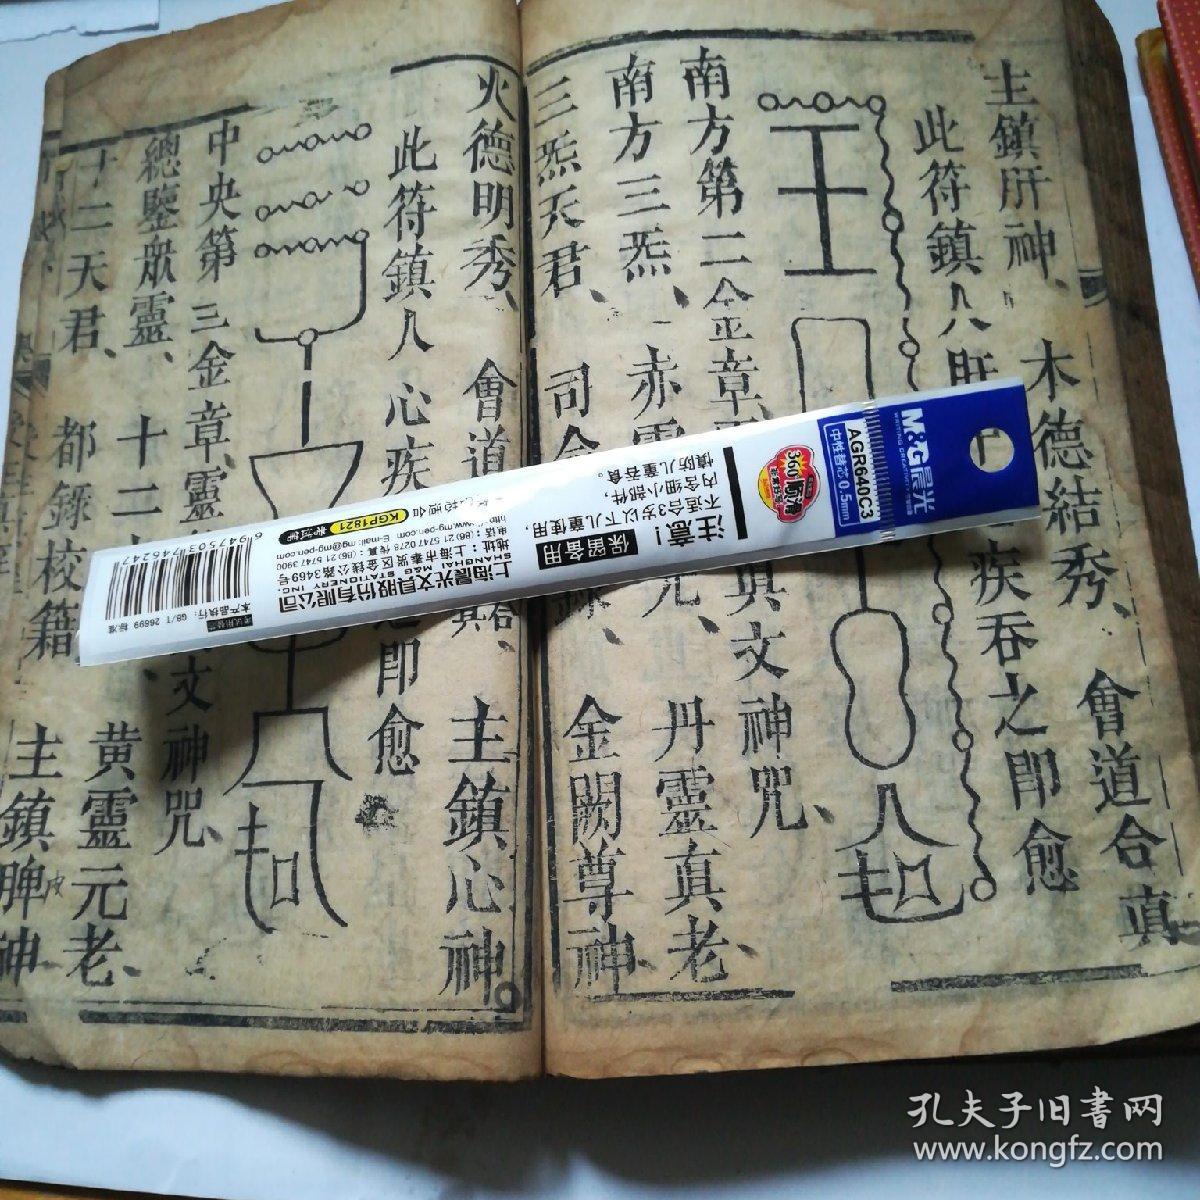 主鎮肝神、 木德結秀、 會道合真
此符鎮人肝 疾吞之即愈
南方第二金章、 真文神咒、
南方三炁、 赤 丹靈真老、
三炁天君、 司 金闕尊神、
火德明秀、 會道 主鎮心神。
此符鎮人心疾 即愈
中央第三金章、靈 文神咒、
總鑒眾靈、 十二 黄靈元老、
十二天君、 都錄校籍 主鎮脾神
M&G晨光
WRITING CREATIVITY
AGR640C3
中性替芯 0.5mm
注意!
不适合3岁以下儿童使用,
内含细小部件,
慎防儿童吞食。
保留备用
上海晨光文具股份有限公司
SHANGHAI M&G STATIONERY INC.
地址:上海市奉贤区金钱公路3469号
电话:(86)21 5747 0278 传真:(86)21 5747 3900
http://www.mg-pen.com E-mail: mg@mg-pen.com
KGP1821
本产品执行:GB/T 26699 标准
6947503746247
孔夫子旧書网
www.kongfz.com